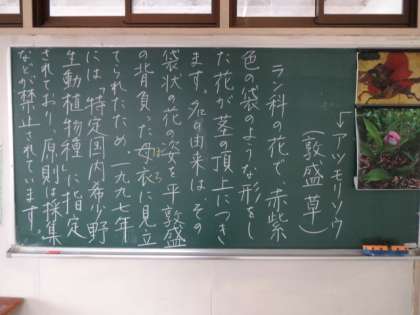 ↓アツモリソウ
(敦盛草)
ラン科の花で、赤紫
色の袋のような形をし
た花が茎の頂上につき
ます。名の由来は、その
袋状の花の姿を平敦盛
の背負った母衣に見立
ほろ
てられたため。一九九七年
には「特定国内希少野
生動植物種」に指定
されており、原則は採集
などが禁止されています。